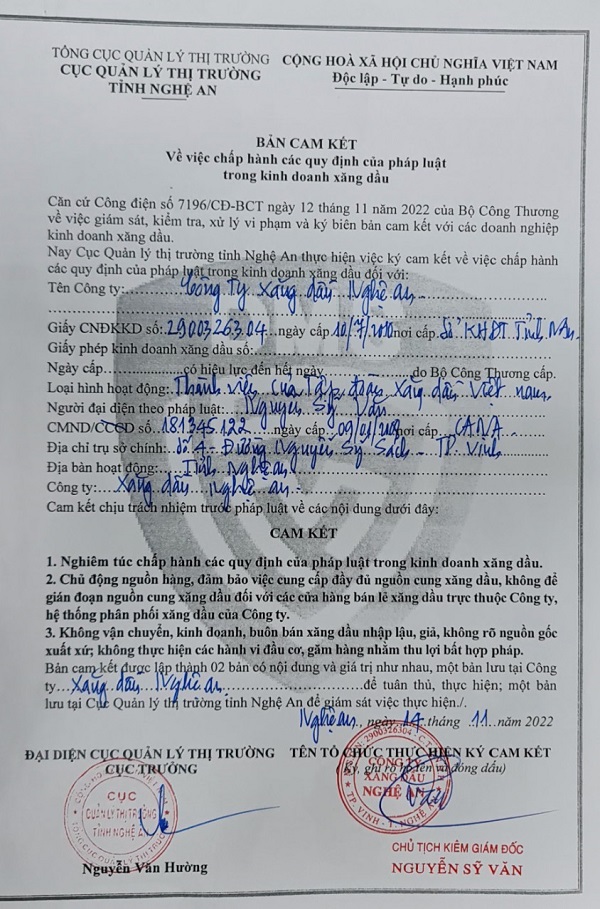 TỔNG CỤC QUẢN LÝ THỊ TRƯỜNG
CỤC QUẢN LÝ THỊ TRƯỜNG
TỈNH NGHỆ AN
CỘNG HOÀ XÃ HỘI CHỦ NGHĨA VIỆT NAM
Độc lập - Tự do - Hạnh phúc
BẢN CAM KẾT
Về việc chấp hành các quy định của pháp luật
trong kinh doanh xăng dầu
Căn cứ Công điện số 7196/CĐ-BCT ngày 12 tháng 11 năm 2022 của Bộ Công Thương
về việc giám sát, kiểm tra, xử lý vi phạm và ký biên bản cam kết với các doanh nghiệp
kinh doanh xăng dầu.
Nay Cục Quản lý thị trường tỉnh Nghệ An thực hiện việc ký cam kết về việc chấp hành
các quy định của pháp luật trong kinh doanh xăng dầu đối với:
Tên Công ty: Công ty Xăng dầu Nghệ an
Giấy CNĐKKD số: 2900326304 ngày cấp 10/7/2010 nơi cấp Sở KHĐT Tỉnh
Giấy phép kinh doanh xăng dầu số:
Ngày cấp có hiệu lực đến hết ngày do Bộ Công Thương cấp.
Loại hình hoạt động: Thành viên của Tập đoàn Xăng dầu Việt nam
Người đại diện theo pháp luật: Nguyễn Sỹ Văn
CMND/CCCD số. 181345122 ngày cấp nơi cấp CANA
Địa chỉ trụ sở chính: Số 4 - Đường Nguyễn Sỹ Sách - TP. Vinh
Địa bàn hoạt động: Tỉnh Nghệ an
Công ty: Xăng dầu Nghệ an
Cam kết chịu trách nhiệm trước pháp luật về các nội dung dưới đây:
CAM KẾT
1. Nghiêm túc chấp hành các quy định của pháp luật trong kinh doanh xăng dầu.
2. Chủ động nguồn hàng, đảm bảo việc cung cấp đầy đủ nguồn cung xăng dầu, không để
gián đoạn nguồn cung xăng dầu đối với các cửa hàng bán lẻ xăng dầu trực thuộc Công ty,
hệ thống phân phối xăng dầu của Công ty.
3. Không vận chuyển, kinh doanh, buôn bán xăng dầu nhập lậu, giả, không rõ nguồn gốc
xuất xứ; không thực hiện các hành vi đầu cơ, găm hàng nhằm thu lợi bất hợp pháp.
Bản cam kết được lập thành 02 bản có nội dung và giá trị như nhau, một bản lưu tại Công
ty Xăng dầu Nghệ an để tuân thủ, thực hiện; một bản
lưu tại Cục Quản lý thị trường tỉnh Nghệ An để giám sát việc thực hiện./.
Nghệ an, ngày 14 tháng 11 năm 2022
ĐẠI DIỆN CỤC QUẢN LÝ THỊ TRƯỜNG
CỤC TRƯỞNG
CỤC
QUẢN LÝ THỊ TRƯỜNG
TỈNH NGHỆ AN
Nguyễn Văn Hường
TÊN TỔ CHỨC THỰC HIỆN KÝ CAM KẾT
(Ký, ghi rõ họ tên và đóng dấu)
2900326304
CÔNG TY
XĂNG DẦU
NGHỆ AN
TP. VINH - T. NGHỆ AN
CHỦ TỊCH KIÊM GIÁM ĐỐC
NGUYỄN SỸ VĂN